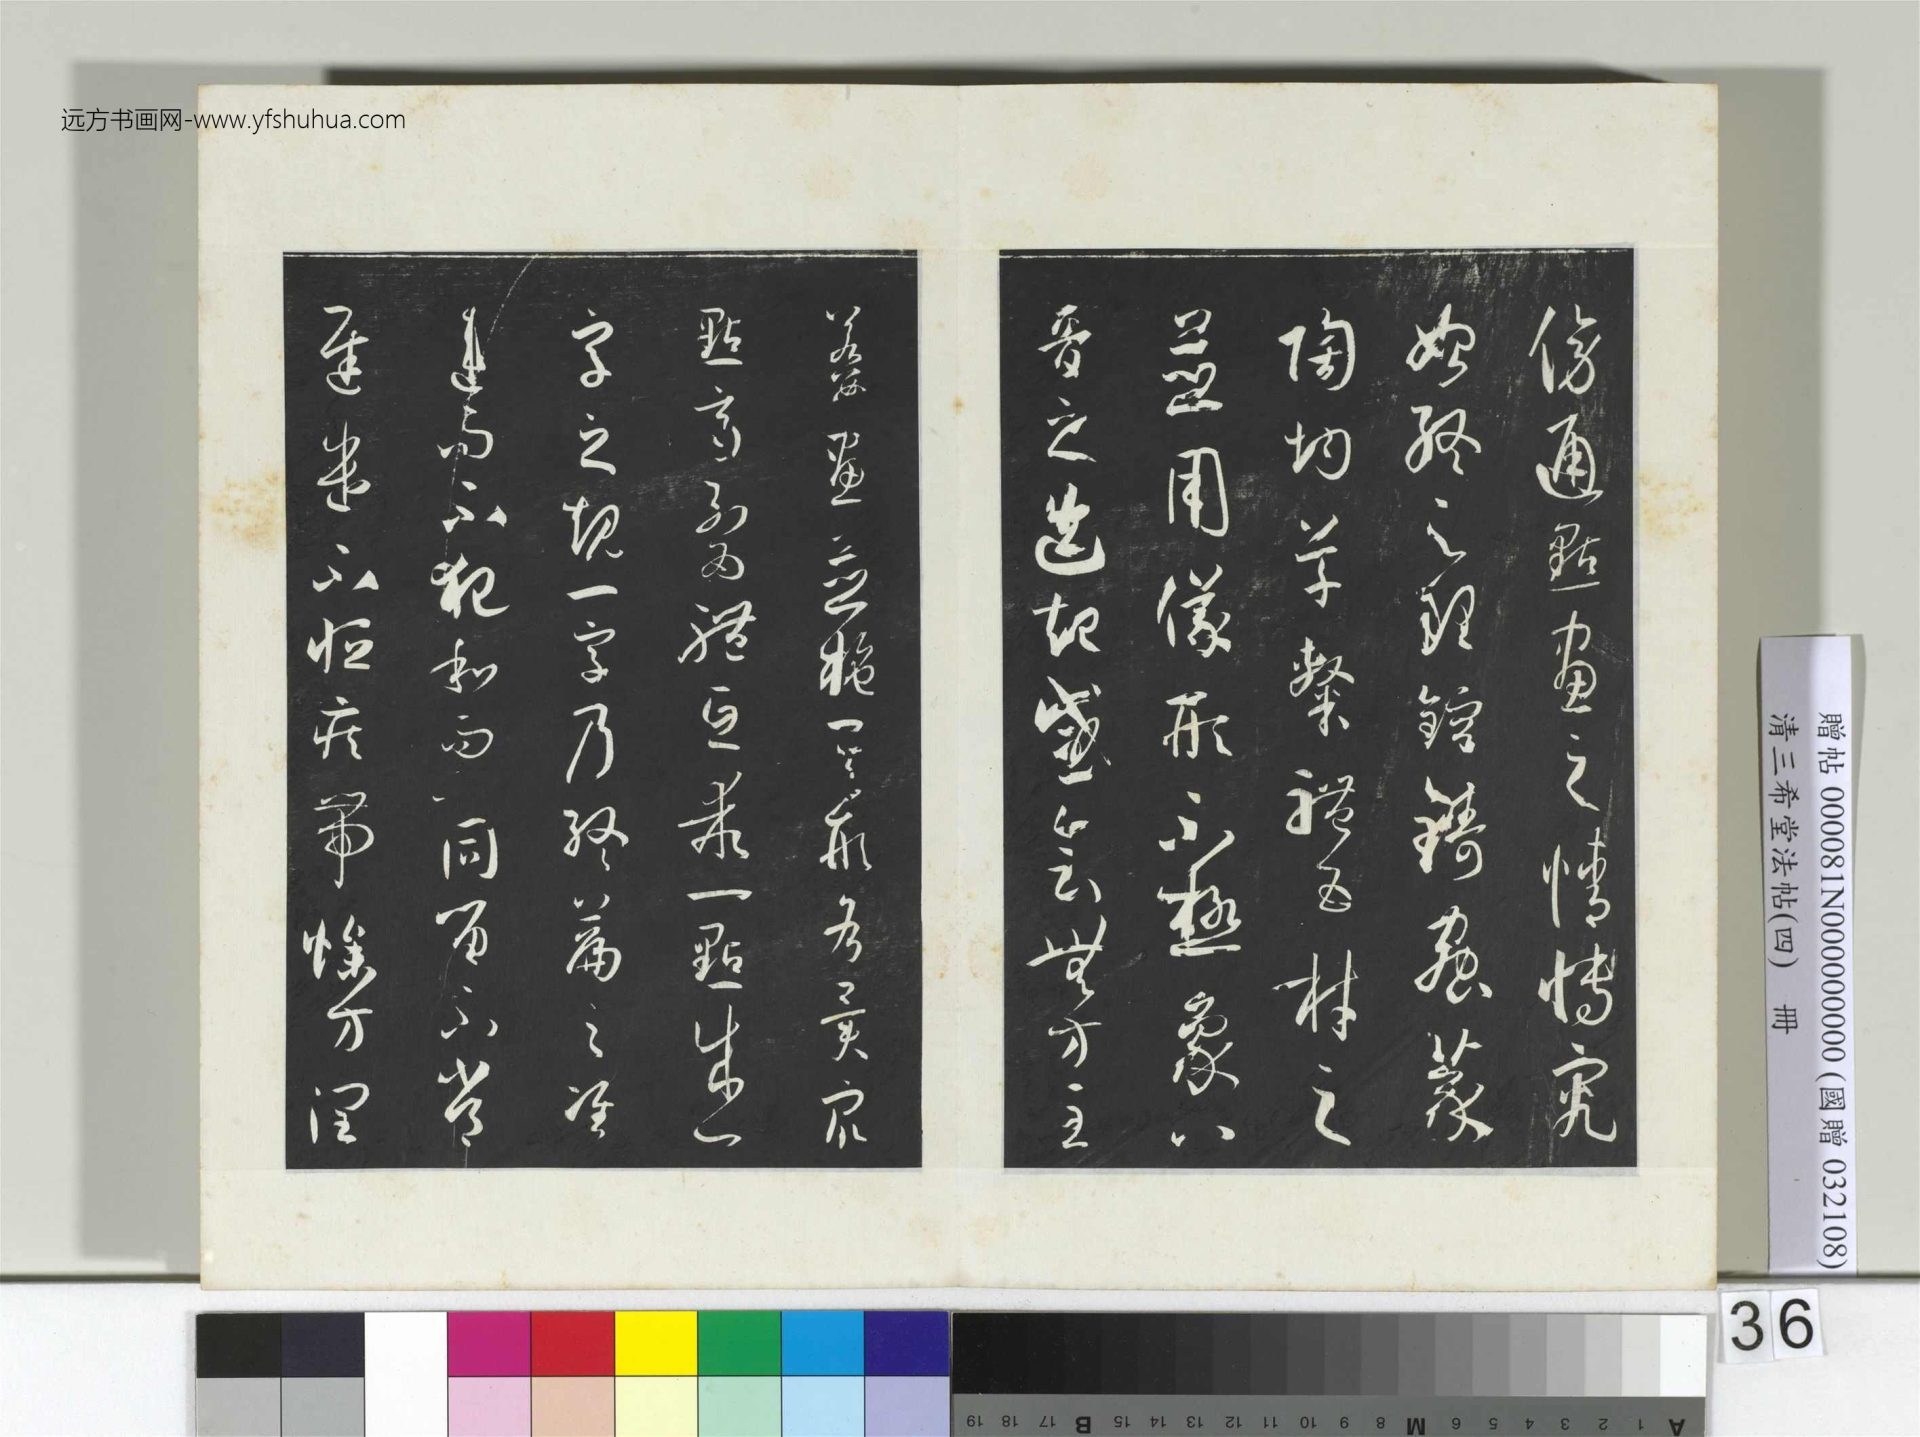 远方书画网-www.yfshuhua.com
傍通點畫之情博究
始終之理鎔鑄蟲篆
陶均草隸體五材之
並用儀形不極象八
音之迭起感會無方至
若數畫並施其形各異眾
點齊列為體互乖一點成一
字之規一字乃終篇之准
違而不犯和而不同留不常
遲遣不恒疾帶燥方潤
贈帖 000081N000000000 (國贈 032108)
清三希堂法帖(四) 冊
36
A 1 2 3 4 5 6 M 8 9 10 11 12 13 14 15 B 17 18 19